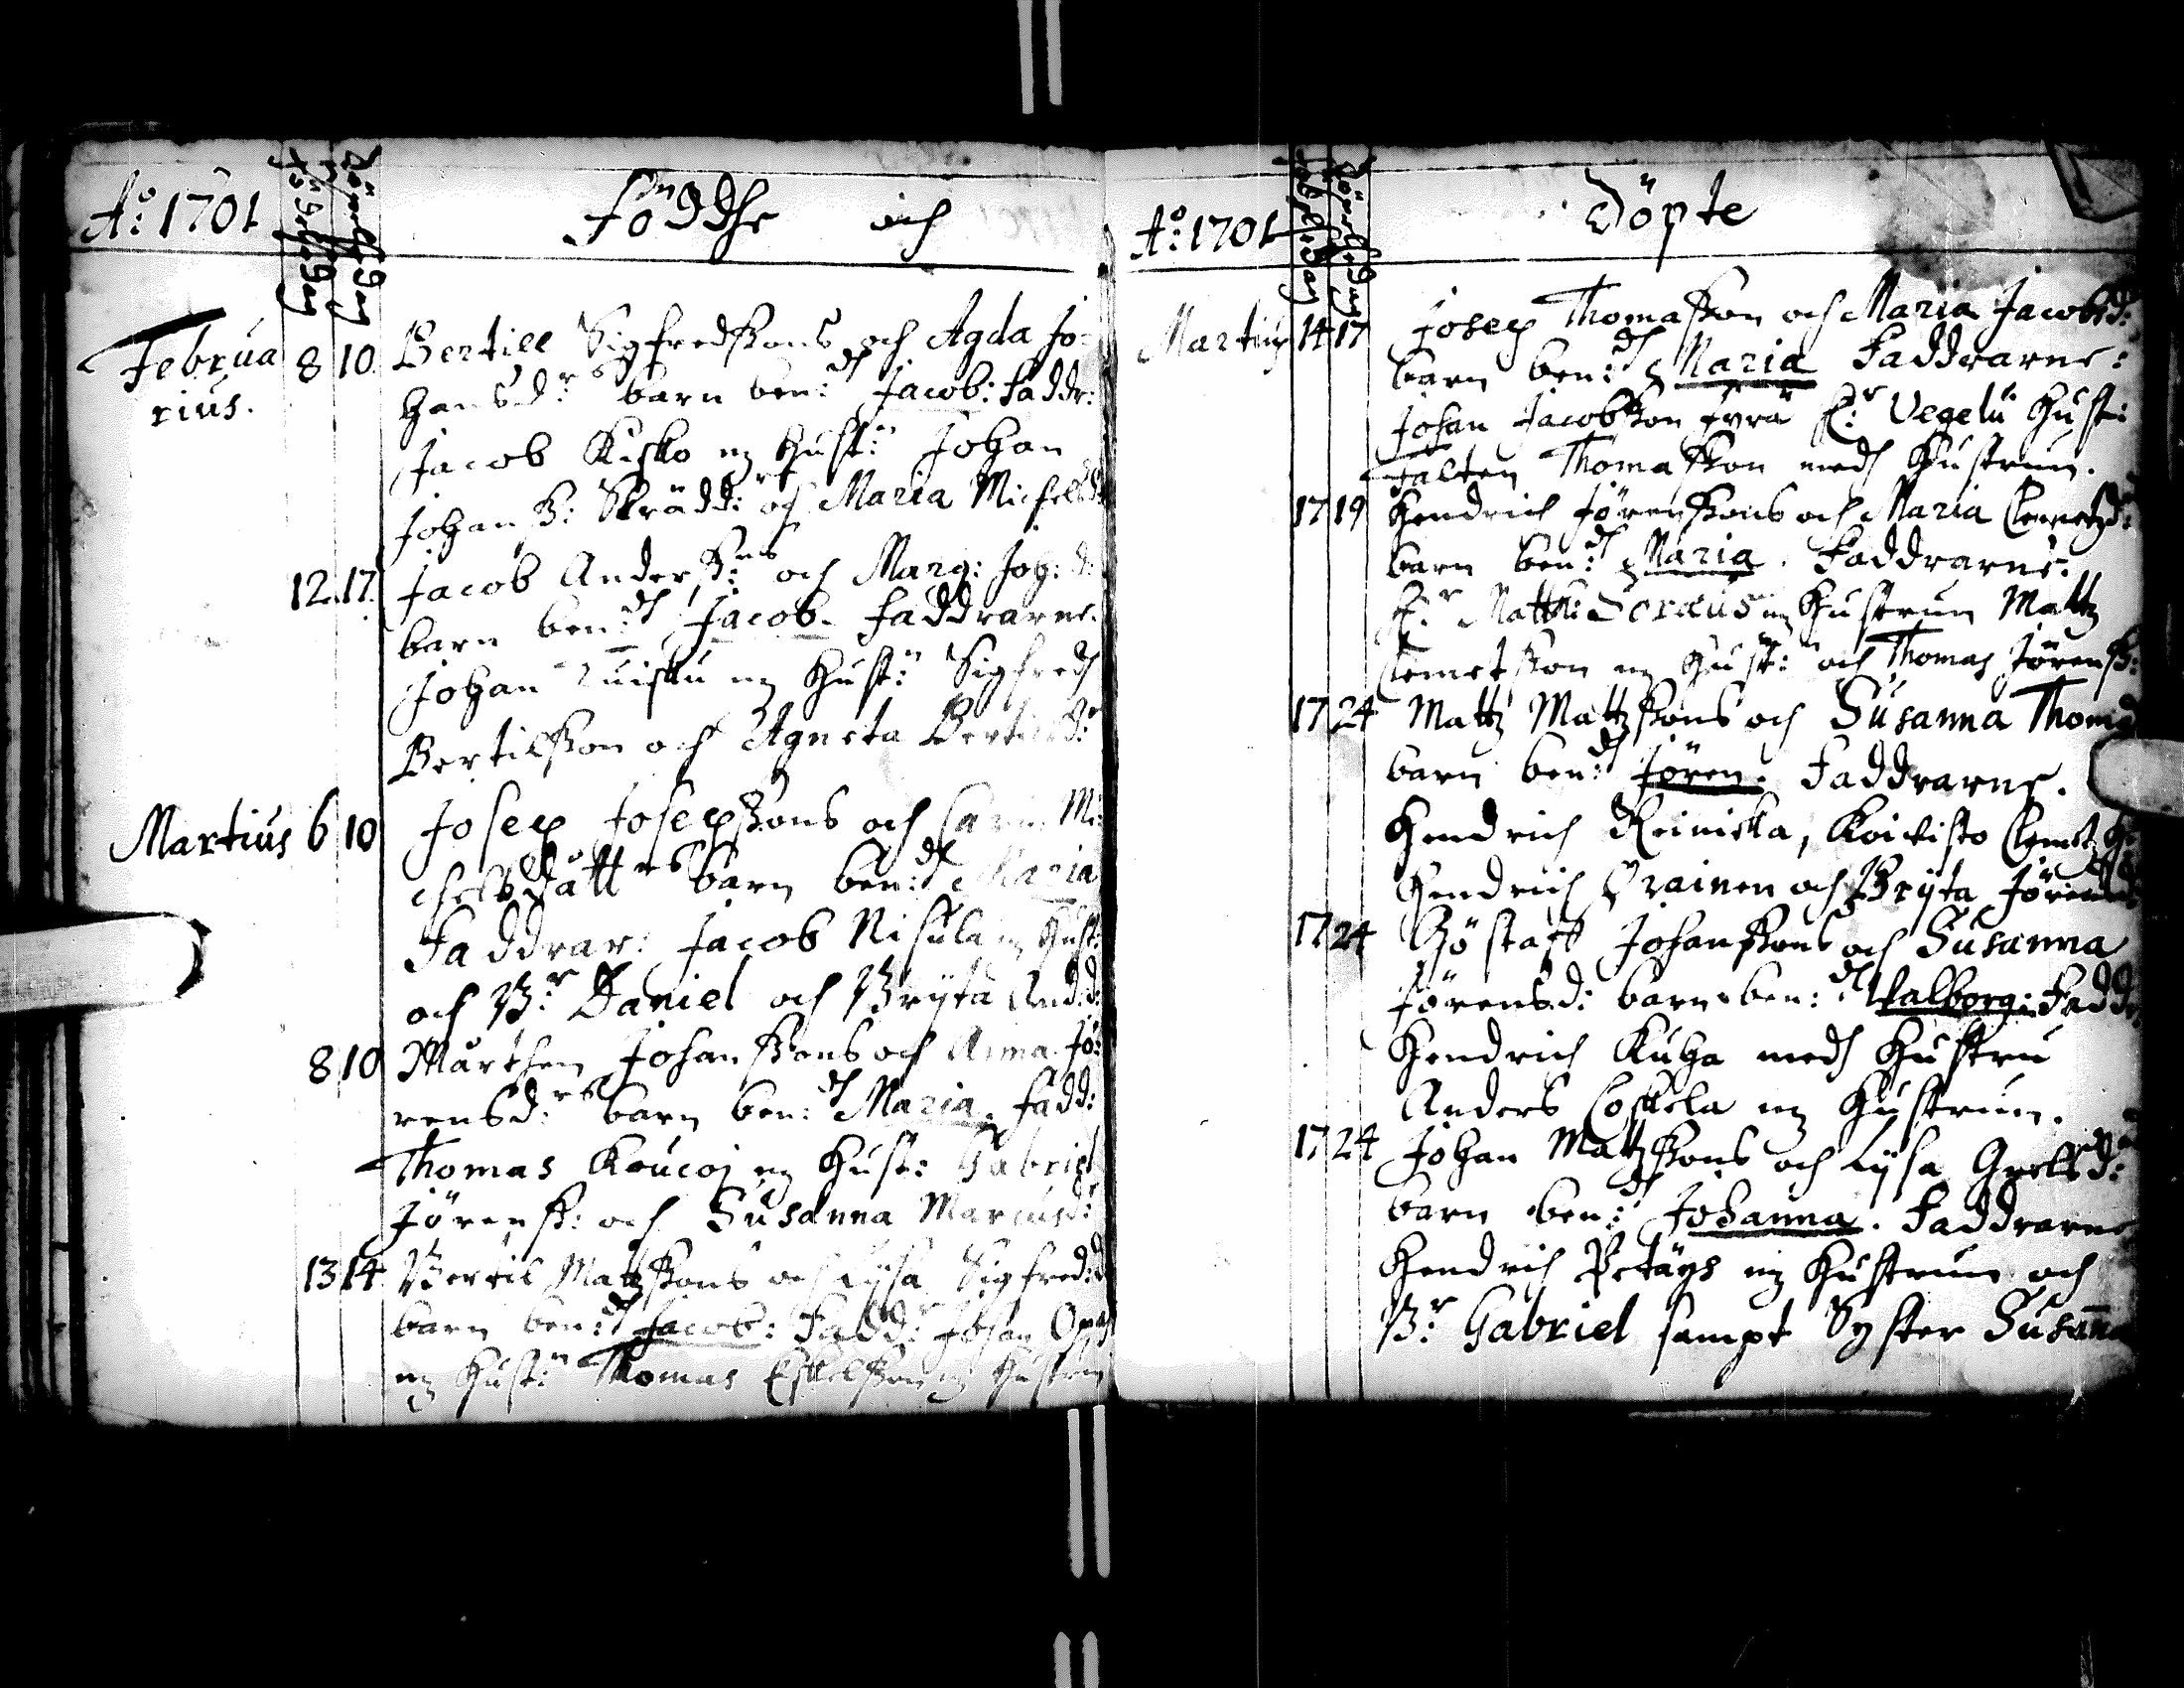 A:o 1701
Födelse dag
Döpelse dag
Födde och
Februa 8 10 Bertill Sigfredssons och Agda Jo-
rius. hansd:rs barn ben:d Jacob: faddr:
Jacob Kisko m Hust:u Johan
Johanss: Skrädd:r och Maria Michelsd:
12. 17. Jacob Anderss:ns och Marg: Joh: d:
barn ben:d Jacob. Faddrarne.
Johan m Hust:u Sigfred
Bertilsson och Agneta Bertilsd:r
Martius 6 10 Josep Josepssons och Carin Mi-
chelsdått:rs barn ben:d Maria
Faddrar: Jacob Nisula m Hust:
och B:r Daniel och Bryta And:d:
8 10 Mårthen Johanssons och Anna Jö-
rensd:rs barn ben:d Maria. fadd:
Thomas Koucoi m Hust: Gabriel
Jörenss: och Susanna Marcusd:
13 14 Bertil Mattzsons och Lysa Sigfred:d
barn ben:d Jacob: Fadd:r Johan
m Hust:u Thomas Eskelsson m Hustrun
A:o 1701
Födelse dag
Döpelse dag
Döpte
Martius 14 17 Josep Thomasson och Maria Jacobsd:
barn ben:d Maria Faddrarne:
Johan Jacobsson H:r Vegelii Hust:
Falten Thomasson med Hustrun.
17 19 Hendrich Jörenssons och Maria Clemetzd:
barn ben:d Maria. Faddrarne.
H:r Matth: m Hustrun Mattz
Clemetsson m Hust:u och Thomas Jörenss:
17 24 Mattz Mattzsons och Susanna Thomd
barn ben:d Jören. Faddrarne.
Hendrich Reiniska, Koivisto Clemet
Hendrich och Bryta Jörensd
17 24 Göstaff Johanssons och Susanna
Jörensd: barn ben:d Valborg: Fadd:
Hendrich Kuha med Hustru
Anders Coskela m Hustrun.
17 24 Johan Mattzsons och Lysa Grelsd:
barn ben:d Johanna. Faddrarne
Hendrich Petäys m Hustrun och
B:r Gabriel sampt Syster Susanna